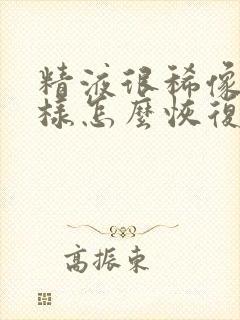 精液很稀像
樣怎麼恢復
高振東